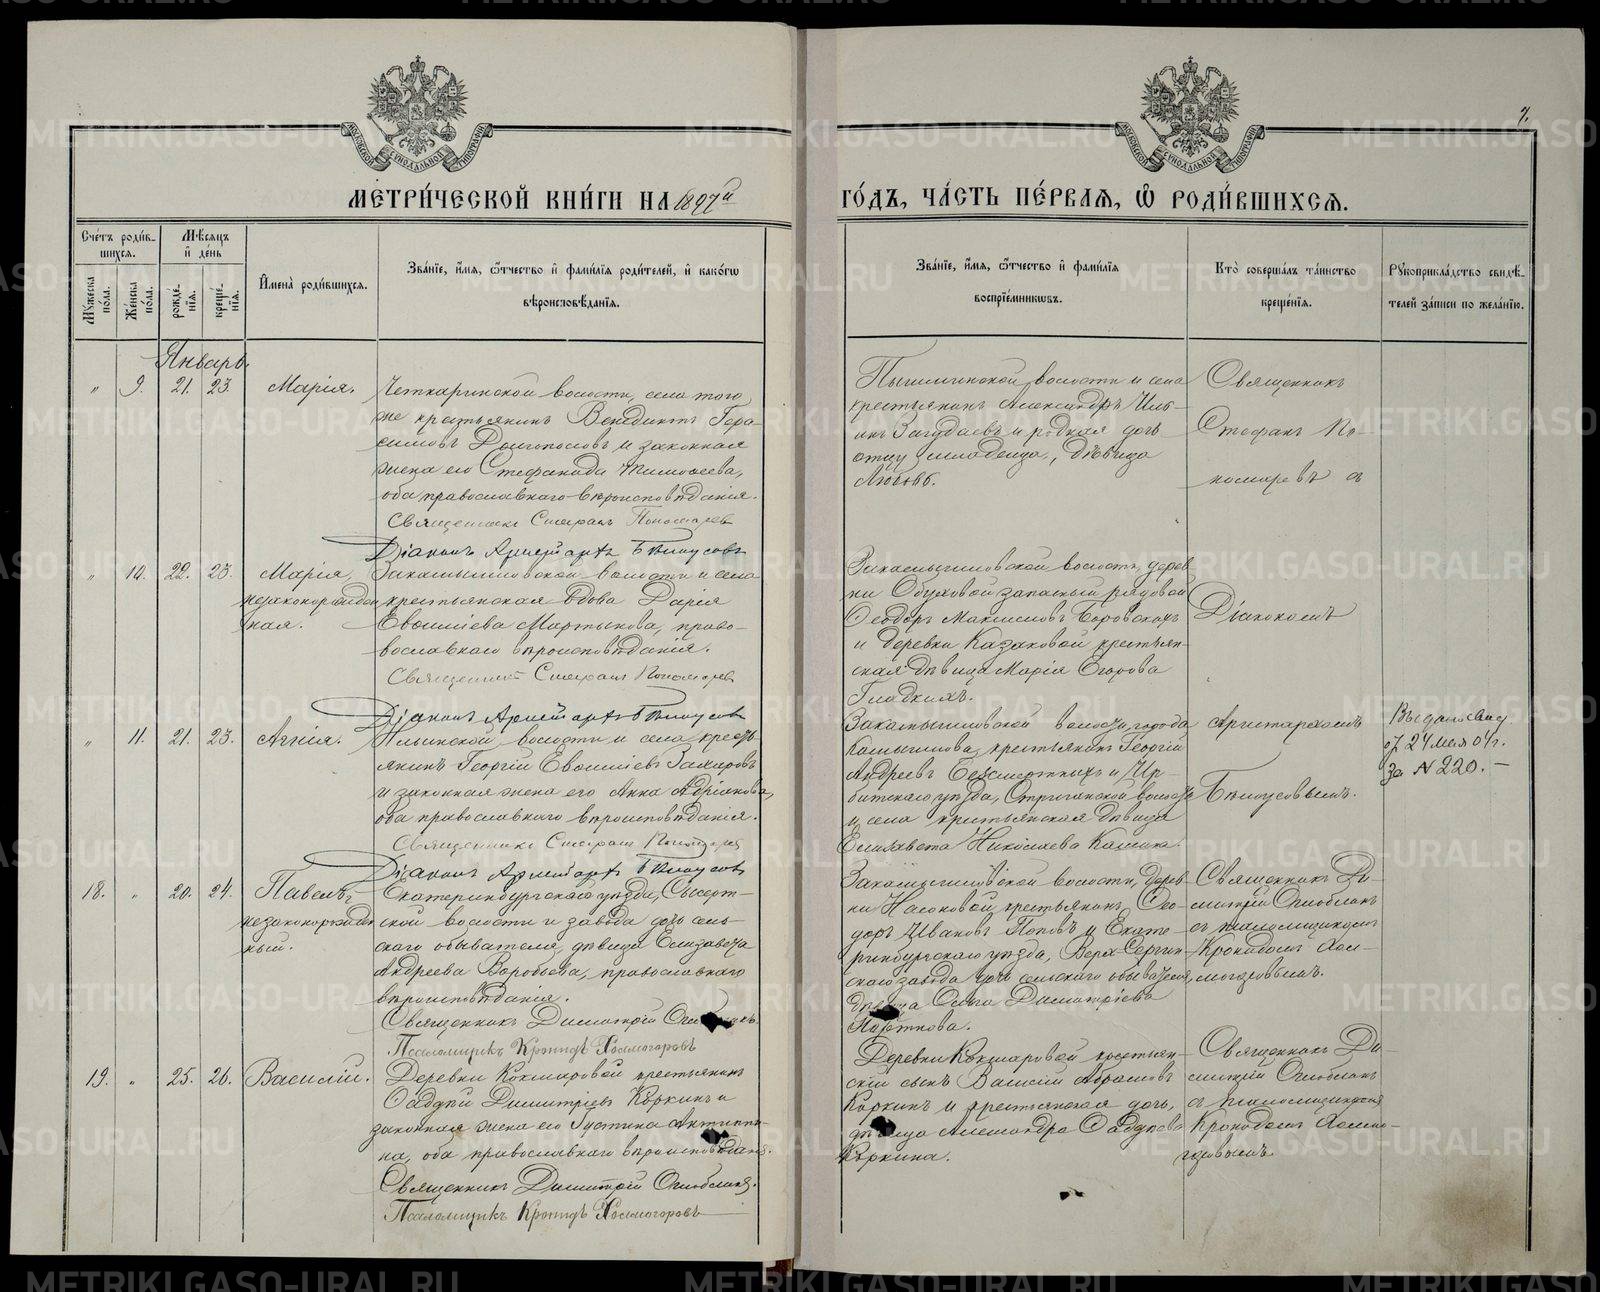 МЕТРИ́ЧЕСКОЙ КНИ́ГИ НА 1897й
ГО́ДЪ, ЧА́СТЬ ПЕ́РВАѦ, Ѽ РОДИ́ВШИХСѦ.
7.
Сче́тъ роди́в-
шихся.
Мѣ́сяцъ
и́ де́нь
Мꙋ́жеска по́ла.
Же́нска по́ла.
рожде́нїя.
креще́нїя.
И҆мена̀ роди́вшихся.
Зва́нїе, и҆́мя, ѻ҆́тчество и҆ фами́лїя роди́телей, и҆ како́гѡ
вѣроисповѣ́данїя.
Зва́нїе, и҆́мя, ѻ҆́тчество и҆ фами́лїя
воспрїе́мникѡвъ.
Кто̀ соверша́лъ та́инство
креще́нїя.
Рꙋкоприкла́дство свидѣ́-
телей за́писи по жела́нїю.
Январь.
" 9. 21. 23. Марія.
Четкаринской волости, села того
же крестьянинъ Венедиктъ Гера-
симовъ Долгополовъ и законная
жена его Стефанида Тимофеева,
оба православнаго вѣроисповѣданія.
Священникъ Стефанъ Пономаревъ
Діаконъ Аристархъ Бѣлоусовъ
Пышминской волости и села
крестьянинъ Александръ Иль-
инъ Загудаевъ и родная дочь
отцу младенца, дѣвица
Любовь.
Священникъ
Стефанъ По-
номаревъ съ
" 10. 22. 23. Марія,
незаконорожден
ная.
Закамышловской волости и села
крестьянская вдова Дарія
Евѳиміева Мартынова, право-
вославнаго вѣроисповѣданія.
Священникъ Стефанъ Пономаревъ
Діаконъ Аристархъ Бѣлоусовъ
Закамышловской волости, дерев-
ни Обуховой запасный рядовой
Ѳеодоръ Максимовъ Боровскихъ
и деревни Казаковой крестьян-
ская дѣвица Марія Егорова
Гладкихъ.
Діакономъ
" 11. 21. 23. Агнія.
Ильинской волости и села кресть-
янинъ Георгій Евѳиміевъ Захаровъ
и законная жена его Анна Адріанова,
оба православнаго вѣроисповѣданія.
Священникъ Стефанъ Пономаревъ
Діаконъ Аристархъ Бѣлоусовъ
Закамышловской волости, города
Камышлова, крестьянинъ Георгій
Андреевъ Безсмертныхъ и Ир-
битскаго уѣзда, Стриганской волости
и села крестьянская дѣвица
Елизавета Николаева Калина.
Аристархомъ
Бѣлоусовымъ.
Выдано свид.
от 24 мая 04 г.
за № 220. —
18. " 20. 24. Павелъ,
незаконорожден
ный.
Екатеринбургскаго уѣзда, Сысерт-
ской волости и завода дочь сель-
скаго обывателя, дѣвица Елизавета
Андреева Воробьева, православнаго
вѣроисповѣданія.
Священникъ Димитрій
Псаломщикъ Кронидъ Холмогоровъ
Закамышловской волости, дерев-
ни Насоновой крестьянинъ Ѳео-
доръ Ивановъ Поповъ и Екате-
ринбургскаго уѣзда, Верх-Сергин-
скаго завода дочь сельскаго обывателя,
дѣвица Ольга Димитріева
Священникъ Ди-
митрій Оглоблинъ
съ псаломщикомъ
Кронидомъ Хол-
могоровымъ.
19. " 25. 26. Василій.
Деревни Кокшаровой крестьянинъ
Ѳаддей Димитріевъ Коркинъ и
законная жена его Іустина Антипи-
на, оба православнаго вѣроисповѣданія.
Священникъ Димитрій Оглоблинъ.
Псаломщикъ Кронидъ Холмогоровъ
Деревни Кокшаровой крестьян-
скій сынъ Василій Абрамовъ
Коркинъ и крестьянская дочь,
дѣвица Александра Ѳаддѣева
Коркина.
Священникъ Ди-
митрій Оглоблинъ
съ псаломщикомъ
Кронидомъ Холмо-
горовымъ.
METRIKI.GASO-URAL.RU